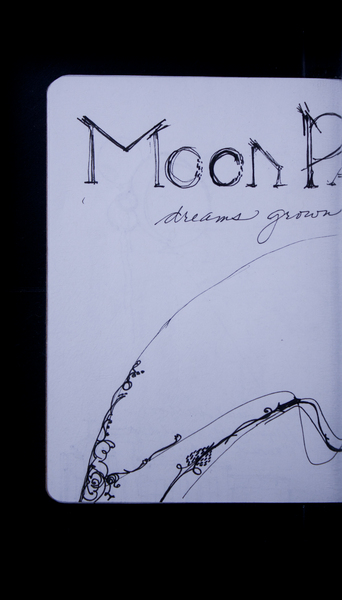 Moon P
dreams grown